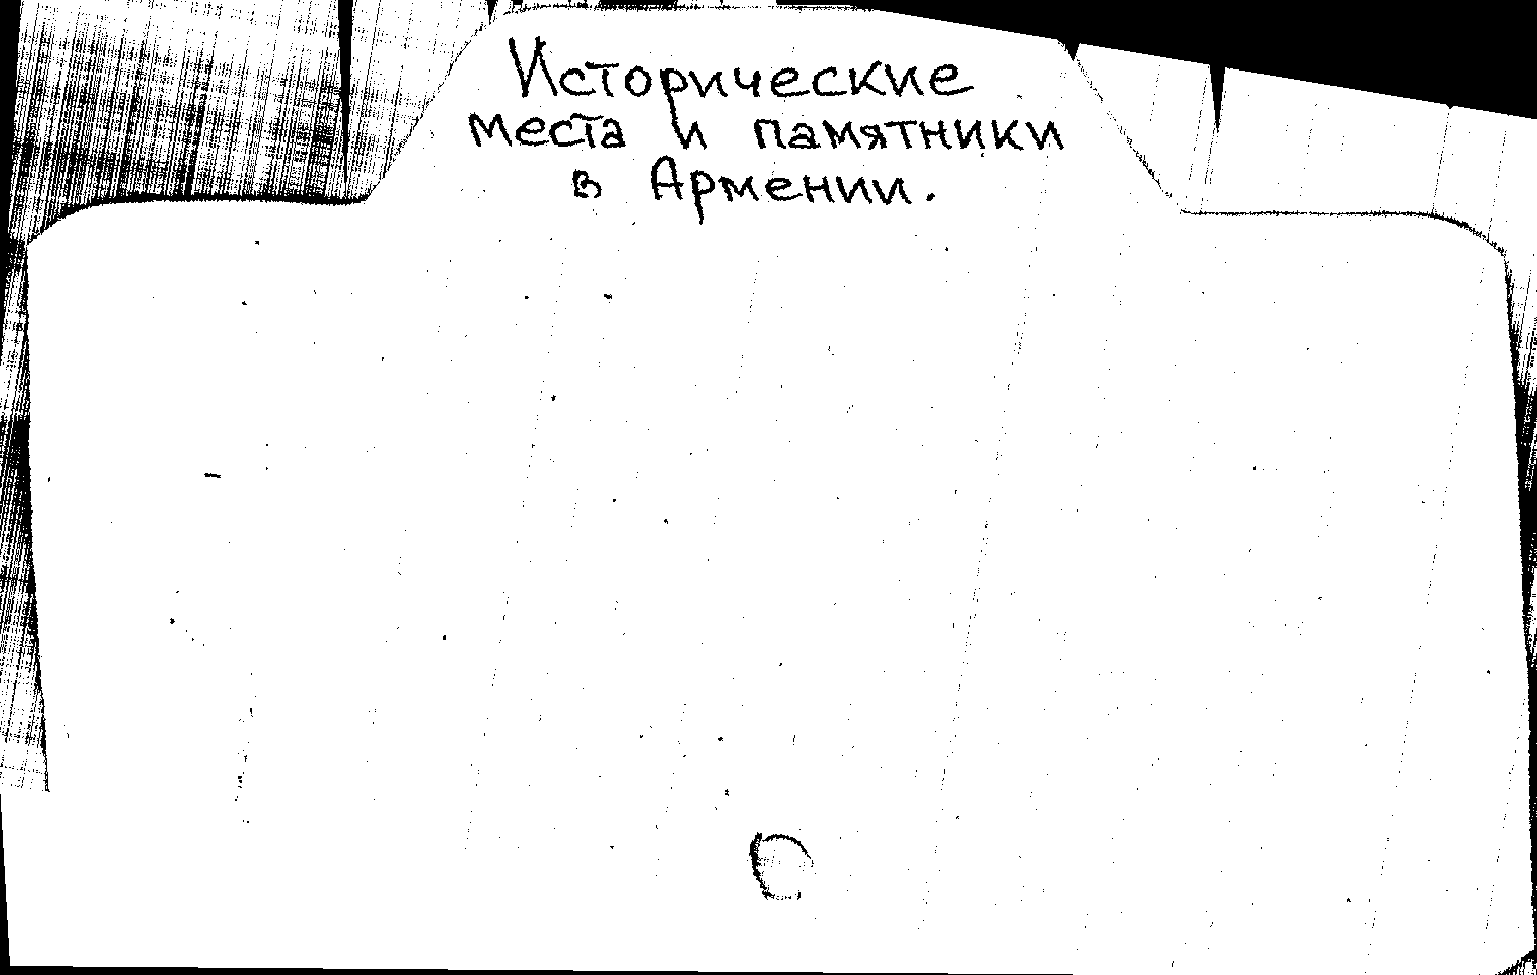 Исторические
места и памятники
в Армении.